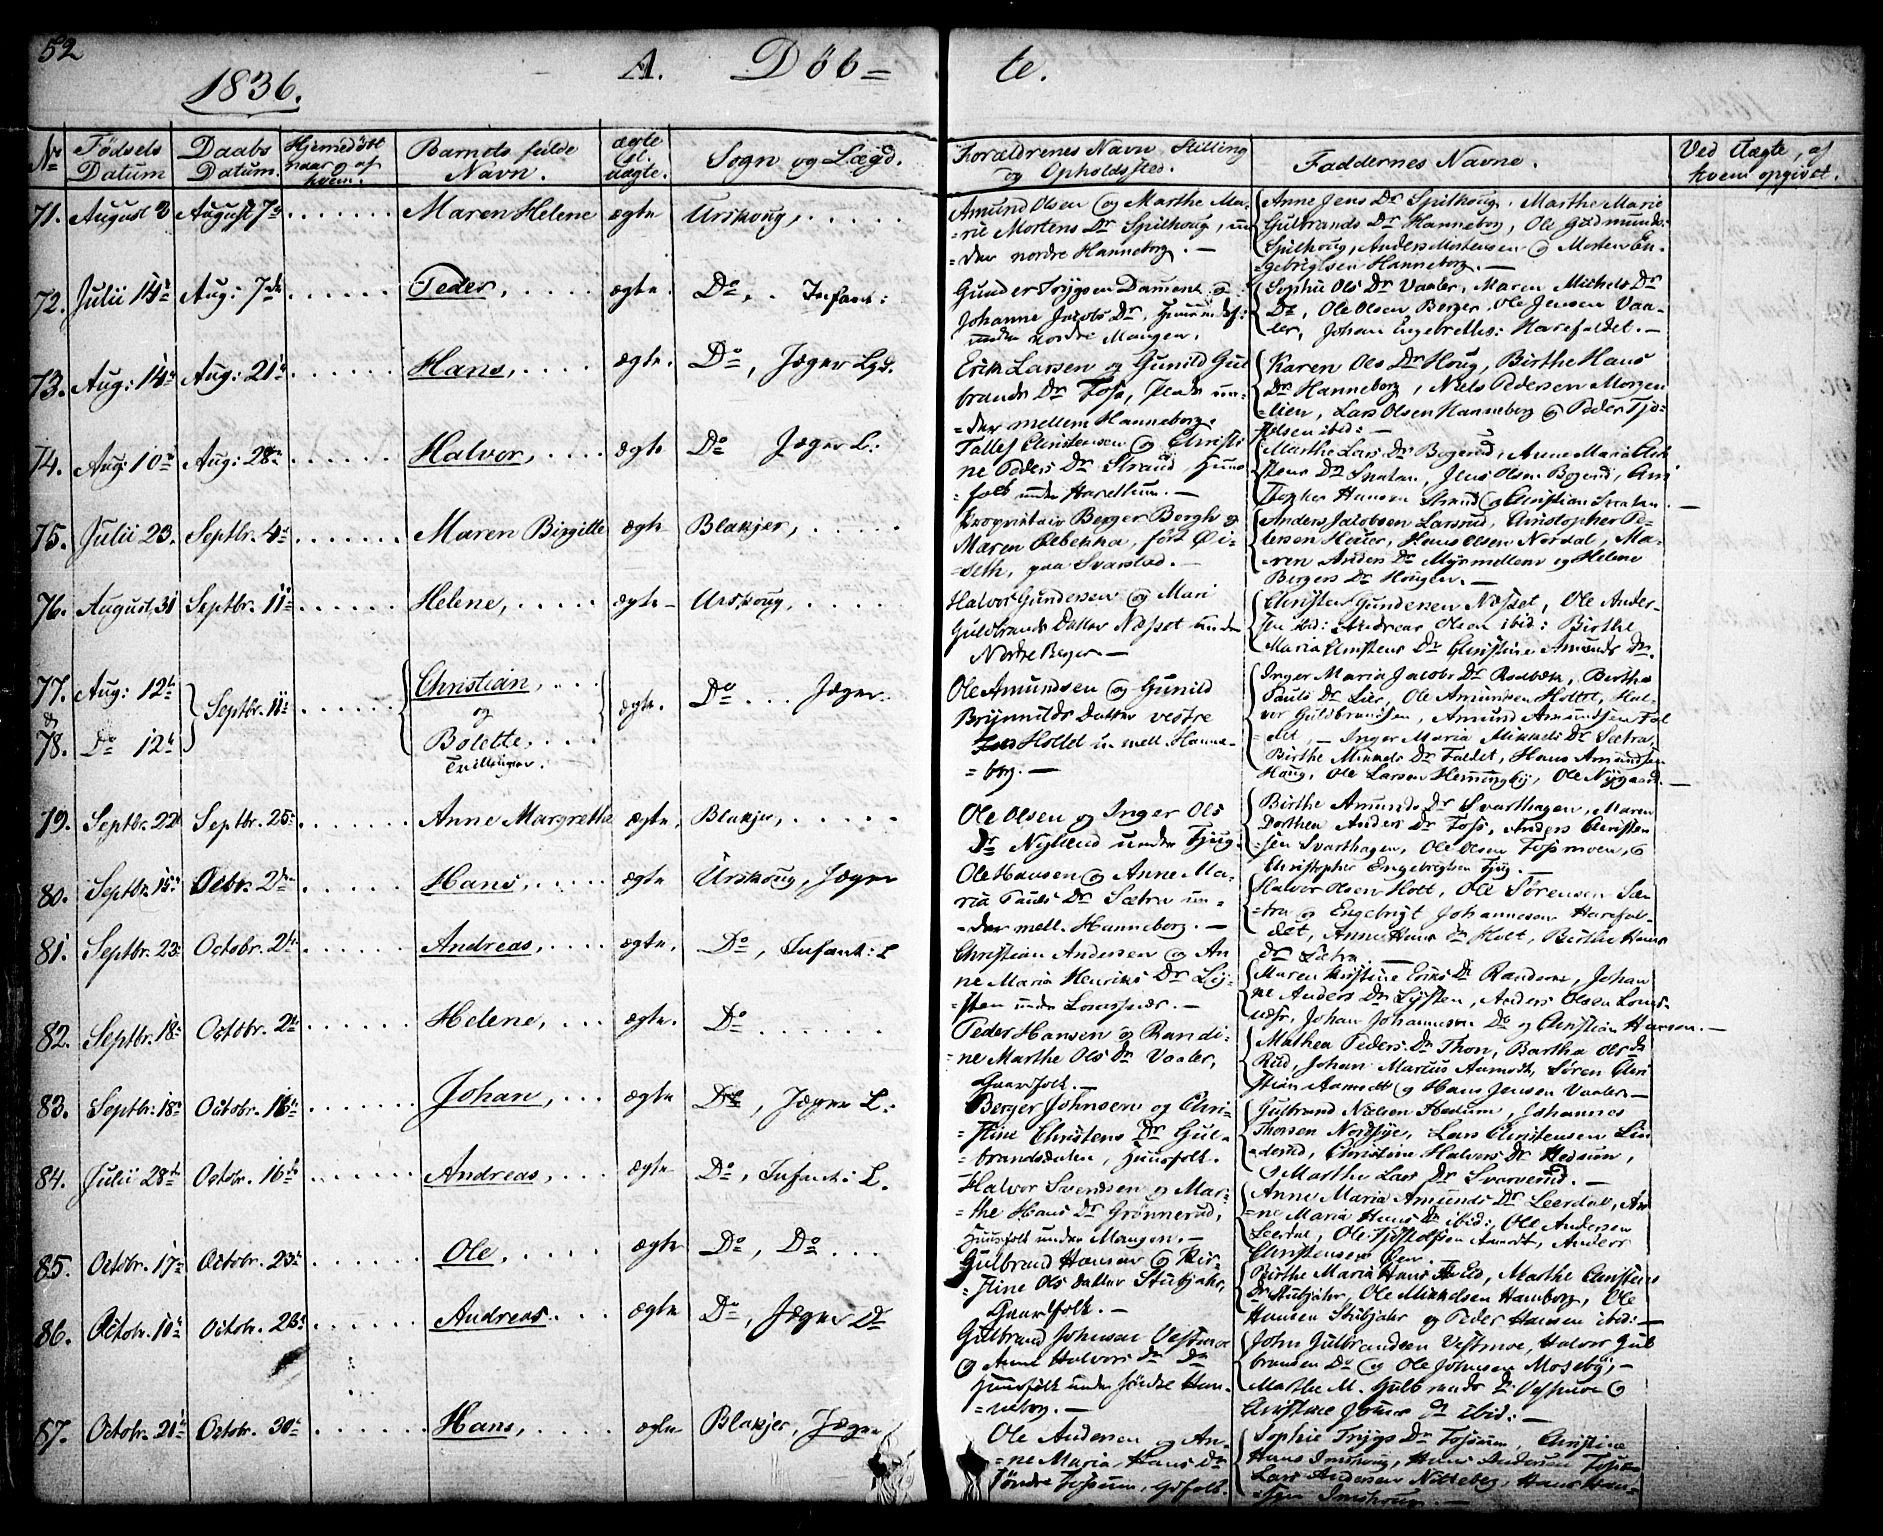 52
1836.
A. Døb=
te.
No
Fødsels Datum
Daabs Datum.
Hjemedøbt naar og af hvem.
Barnets fulde Navn.
ægte el. uægte.
Sogn og Lægd.
Forældrenes Navn Stilling og Opholdssted.
Faddernes Navne.
Ved Uægte, af hvem opgivet.
71. August 3 August 7de Maren Helene ægte Urskoug,
Amund Olsen og Marthe Ma-
=rie Mortens Dr Spilhoug, un
=der nordre Hanneborg. —
Anne Jens Dr Spilhoug, Marthe Marie
Gulbrands Dr Hanneborg, Ole Gudmunds:
Spilhoug, Anders Mortensen og Morten En-
=gebrigtsen Hanneborg. —
72. Julii 14de Aug: 7de Peder, ægte. Do, Infant:
Gunder Trygsen Dament og
Johanne Jacobs Dr, Huusmdsf:
under nordre Mangen.
Sophie Ols Dr Vaaler, Maren Michels Dr
Do, Ole Olsen Berger, Ole Jensen Vaa-
ler, Johan Engebretts: Harefaldet. —
73. Aug: 14de Aug: 21de Hans, ægte. Do, Jæger Lgd.
Erik Larsen og Gunild Gul
brands Dr Foss, Plads un-
=der mellem Hanneborg.
Karen Ols Dr Houg, Birthe Hans
Dr Hanneborg, Niels Pedersen Morgen
=lien, Lars Olsen Hanneborg og Peder Tjo-
stelsen ibid: —
74. Aug: 10de Aug: 28de Halvor, ægte Do Jæger L:
Tallef Christensen og Christi
ne Peders Dr Strand, Huus
=folk under Haretkun. —
Marthe Lars Dr Bogerud, Anne Maria Chri
stens Dr Snatan, Jens Olsen Bogerud, Chri
stopher Hansen Strand og Christian Snatan
75. Julii 23. Septbr. 4de Maren Birgitte ægte Blakjer,
Proprietair Berger Bergh og
Maren Rebekka, født Øi-
=seth, paa Svarstad. —
Anders Jacobsen Larsrud, Christopher Pe-
tersen Heier, Hans Olsen Nordal, Ma-
ren Anders Dr Myrmellem og Helene
Bergers Dr Hougen. —
76. August, 31 Septbr. 11te Helene, ægte — Urskoug,
Halvor Gundersen og Mari
Guldbrands Datter Næsset under
Nordre Berger. —
Christen Gundersen Næsset, Ole Ander-
sen ibid: Andreas Olsen ibid: Birthe
Maria Christens Dr Christine Amunds Dr.
77. Aug: 12te
&
78. Do 12te
Septbr. 11te
Christian,
og
Bolette,
Tvillinger.
ægte. Do Jæger.
Ole Amundsen og Gunild
Brynnilds Datter vestre
Hollet u. mell. Hanne-
=borg. —
Inger Maria Jacobs Dr Rodbæk, Birthe
Pauls Dr Lier, Ole Amundsen Holtet, Hal-
vor Guldbrandsen, Amund Amundsen Fal
det, — Inger Maria Mikkels Dr Sætra,
Birthe Mikkels Dr Faldet, Hans Amundsen
Houg, Ole Larsen Hemingby, Ole Nygaard. —
79. Septbr. 22de Septbr. 25de Anne Margrethe ægte, Blakjer,
Ole Olsen og Inger Ols
Dr Nylænd under Tjug.
Birthe Amunds Dr Svarthagen, Maren
Dorthea Anders Dr Foss, Anders Christen
=sen Svarthagen, Ole Olsen Fossmoen, og
Christopher Engebrigtsen Tjug. —
80. Septbr. 15de Octbr. 2den Hans, ægte Urskoug, Jæger
Ole Hansen og Anne Ma-
ria Pauls Dr Sætra un-
=der mell. Hanneborg. —
Halvor Olsen Holt, Ole Sørensen Sæ-
=tra og Engebrigt Johannesen Harefal-
det, Anne Hans Dr Holt, Birthe Hans
Dr Sætra. —
81. Septbr. 23. Octobr. 2den Andreas, ægte. Do, Infant: L
Christian Andersen og An
ne Maria Henriks Dr Ly-
=sten under Lonesnær. —
Maren Christine Eriks Dr Randerne, Johan
ne Anders Dr Lysten, Anders Olsen Lones
næss, Johan Johannesen Do og Christian Hansen. —
82. Septbr. 18de Octobr. 2den Helene, ægte. Do
Peder Hansen og Randi-
ne Marthe Ols Dr Vaaler,
Gaardfolk. —
Mathea Peders Dr Thon, Bartha Ols Dr
Rud, Johan Marcus Aamodt, Søren Chri
stian Aamodt og Hans Jensen Vaaler —
83. Septbr. 18de Octobr. 16de Johan, ægte Do, Jæger L:
Berger Johnsen og Chri-
=stine Christens Dr Gul-
brandsdalen, Huusfolk.
Gulbrand Nielsen Hedum, Johannes
Thorsen Nordbye, Lars Christensen Lin
=derud, Christine Halvors Dr Hedum,
og Marthe Lars Dr Svarverud. —
84. Julii 28de Octobr. 16de Andreas, ægte Do, Infant: L.
Halvor Svendsen og Mar-
=the Hans Dr Grønnerud,
Huusfolk under Mangen. —
Anne Maria Amunds Dr Leerdal, An
=ne Maria Hans Dr ibid:, Ole Andersen
Leerdal, Ole Tjostolfsen Aamodt, Anders
Christensen Øien.
85. Octobr. 17de Octobr. 23de Ole, ægte Do, Do
Gulbrand Hansen og Kir-
=stine Ols datter Stubjahr,
Gaardfolk. —
Birthe Maria Hans Dr Eid, Marthe Christens
Dr Stubjahr, Ole Mikkelsen Hamborg, Ole
Hansen Stubjahr og Peder Hansen ibid: —
86. Octobr. 10de Octobr. 23de Andreas. ægte Do, Jæger Do
Gulbrand Johnsen Vestmoe
og Anne Halvors Dr Do
Huusfolk under søndre Han-
=neborg. —
John Gulbrandsen Vestmoe, Halvor Gul
bransen Do og Ole Johnsen Moseby, —
Marthe M. Gulbrands Dr Vestmoe og
Christine Johns Dr ibid: —
87. Octobr. 21de Octobr. 30de Hans, ægte Blakjer, Jæger
Ole Andersen og An-
=ne Maria Hans Dr
Søndre Fossum, Gdfolk.
Sophie Trygs Dr Fossum, Christine
Hans Imshoug, Hans Andersen Fossum
Lars Andersen Nitteberg, Hans Han-
=sen Imshoug. —